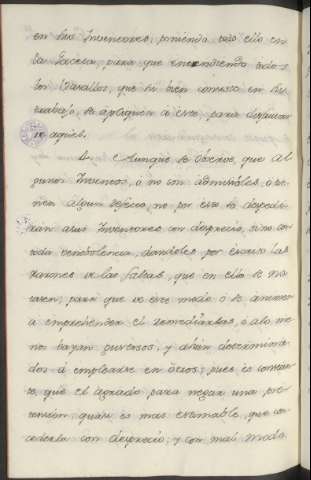 en los Inventores, poniendo todo ello en
la Gaceta, para que entendiendo todos
los Vasallos, que es bien corresto en su
trabajo, se apliquen à este, para disfrutar
de aquel.
Aunque se observe, que al
gunos Inventos, ó no son admisibles, ó te
nan algun defecto, no por esto se despedi
rán à sus Inventores con desprecio, sino con
toda venebolencia, dandoles por escrito las
razones de las faltas, que en ello se no
taren, para que de este modo ó se animen
a emprehender el remediarlas, ó alo me
nos vayan gustosos, y estén determina
dos à emplearse en otros; pues es constan
te, que el agrado para negar una pre
tension, quasi es mas estimable, que con
cederla con desprecio, y con mal modo.